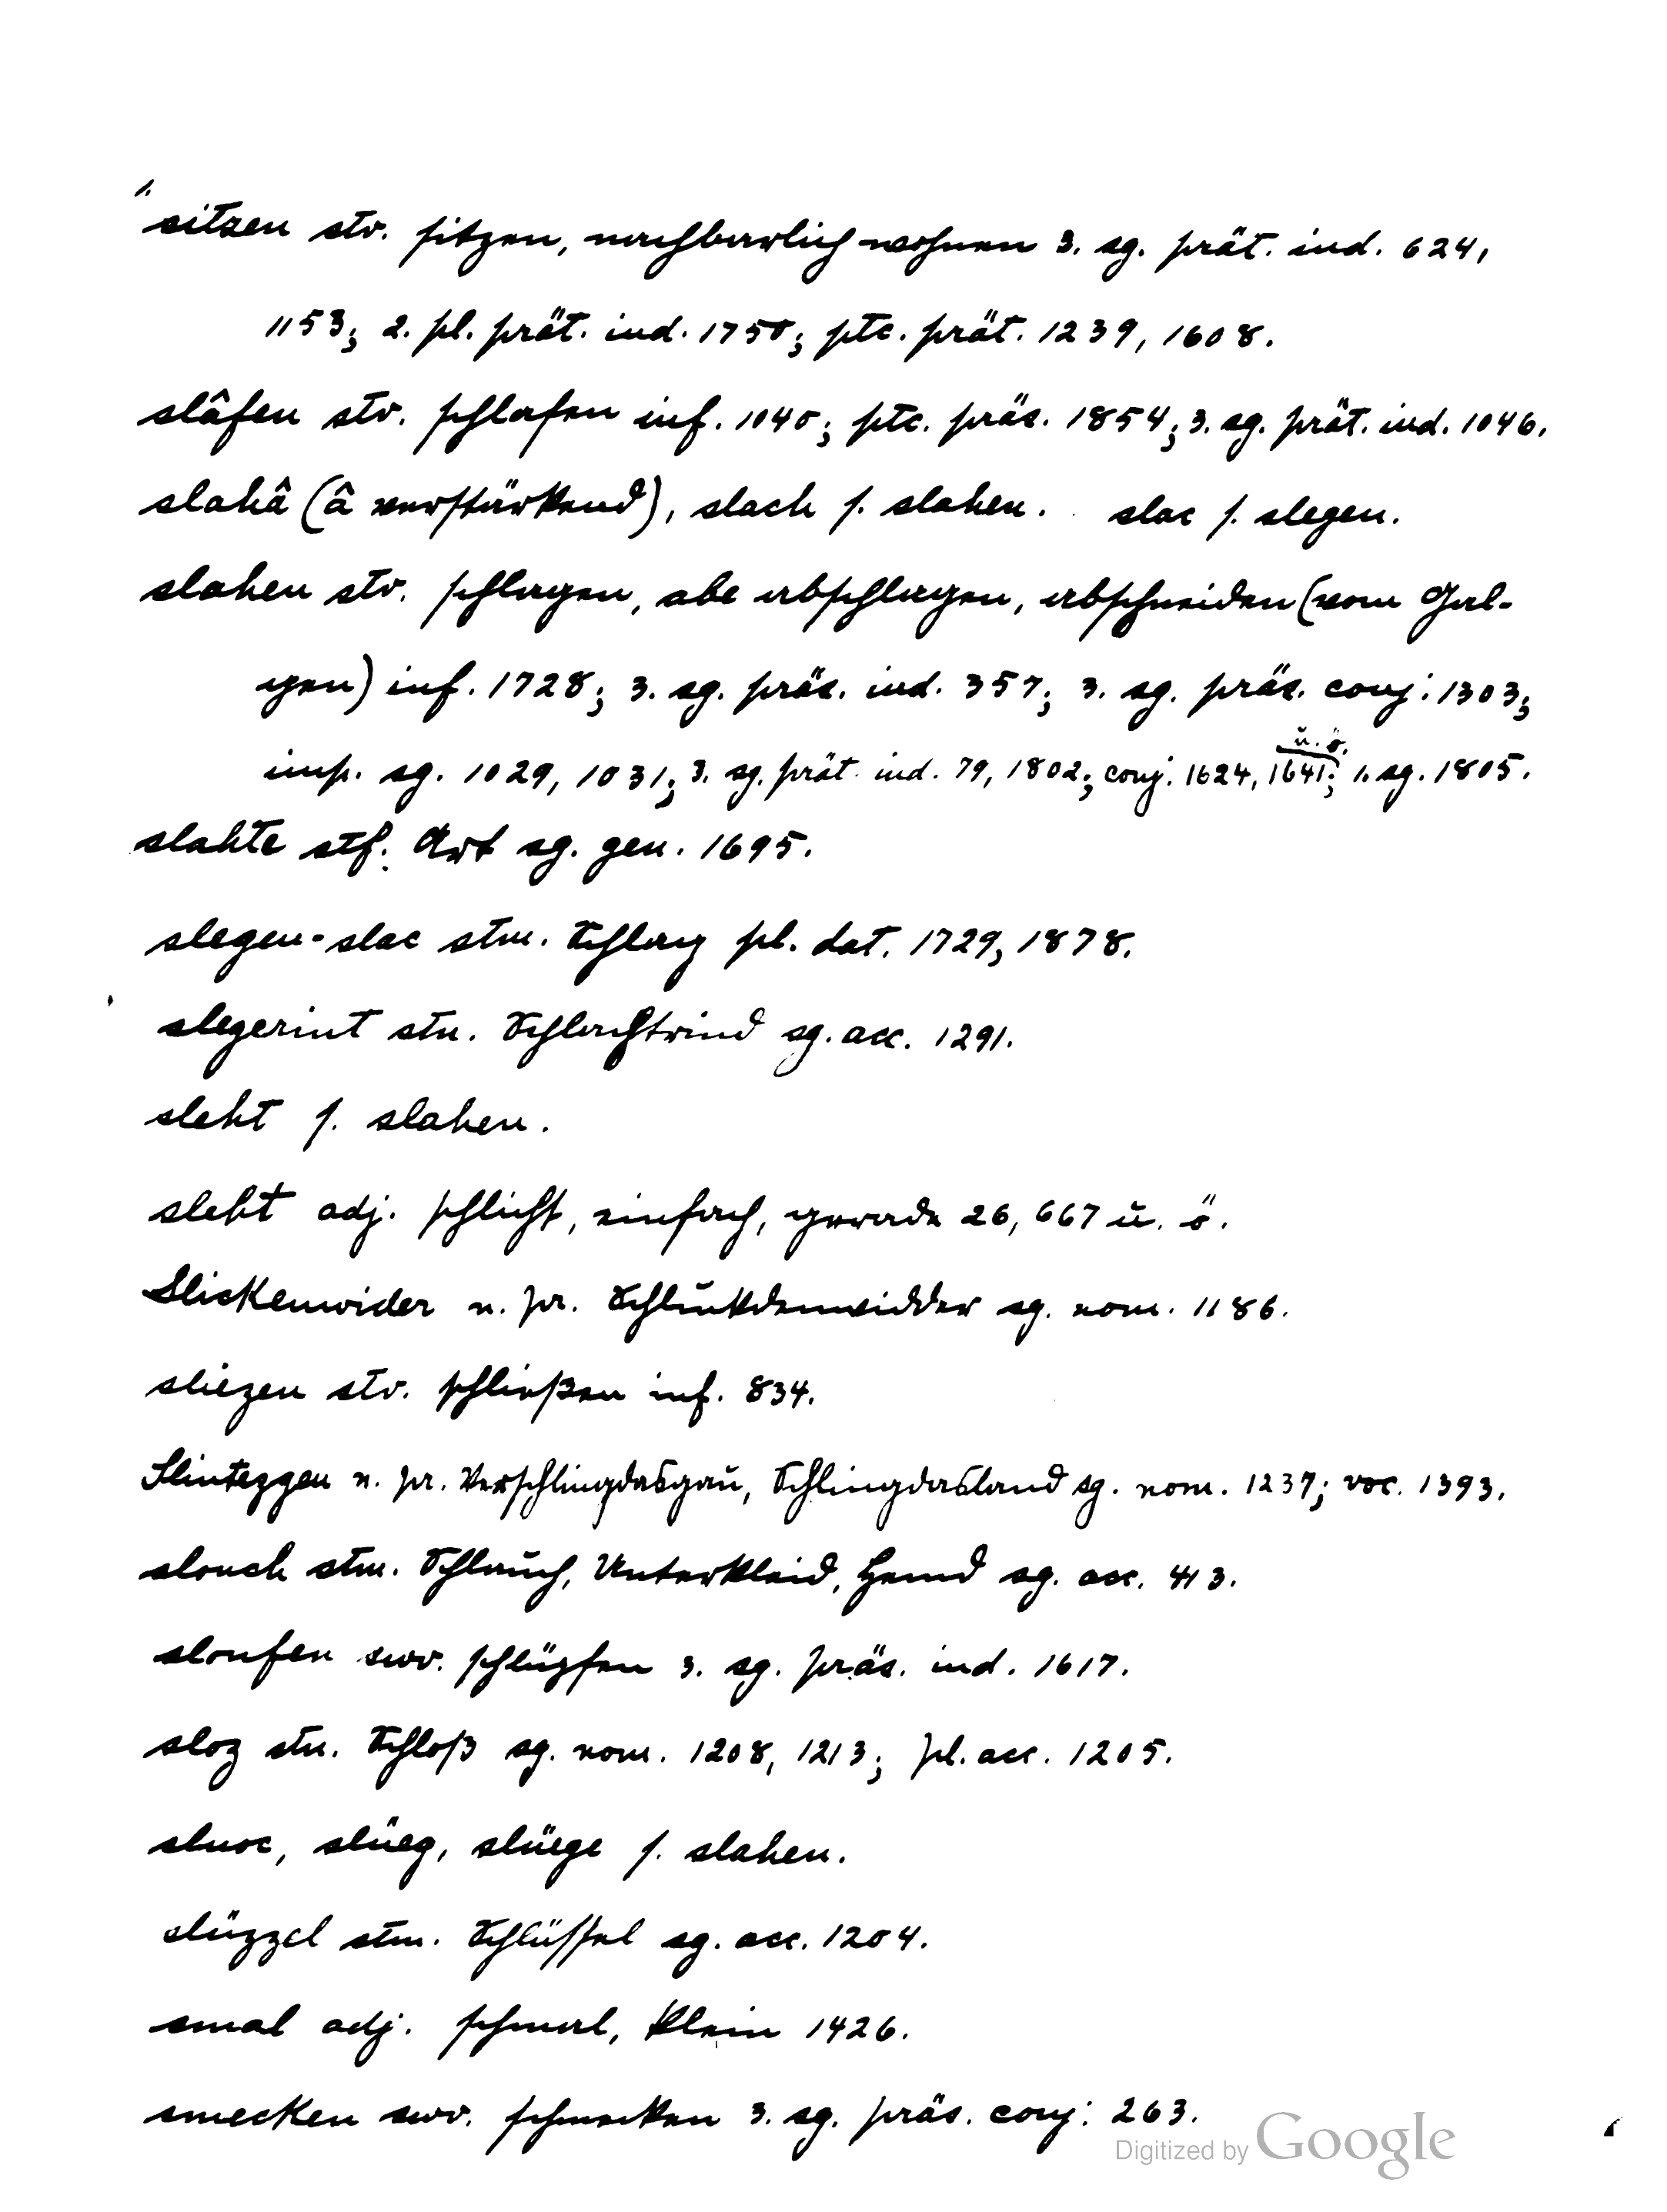 sitzen stv. sitzen, nachbarlich wohnen 3. sg. prät. ind. 624,
1153; 2. pl. prät. ind. 1750; ptc. prät. 1239, 1608.
slâfen stv. schlafen inf. 1040; ptc. präs. 1854; 3. sg. prät. ind. 1046.
slahâ (â verstärkend), slach s. slahen. slac s. slegen.
slahen stv. schlagen, abe abschlagen, abschneiden (vom Gal-
gen) inf. 1728; 3. sg. präs. ind. 357; 3. sg. präs. conj. 1303;
imp. sg. 1029, 1031; 3. sg. prät. ind. 79, 1802; conj. 1624, 1641 u. ö.; 1. sg. 1805.
slahte stf. Art sg. gen. 1695.
slegen-slac stm. Schlag pl. dat. 1729, 1878.
slegerint stn. Schlachtrind sg. acc. 1291.
sleht s. slahen.
sleht adj. schlicht, einfach, gerade 26, 667 u. ö.
Slickenwider n. pr. Schluckdenwidder sg. nom. 1186.
sliezen stv. schließen inf. 834.
Slintezgeu n. pr. Verschlingdasgau, Schlingdasland sg. nom. 1237; voc. 1393.
slouch stm. Schlauch, Unterkleid, Hemd sg. acc. 413.
sloufen swv. schlüpfen 3. sg. präs. ind. 1617.
sloz stn. Schloß sg. nom. 1208, 1213; pl. acc. 1205.
sluoc, slüeg, slüege s. slahen.
slüzzel stm. Schlüssel sg. acc. 1204.
smal adj. schmal, klein 1426.
smecken swv. schmecken 3. sg. präs. conj. 263.
Digitized by Google